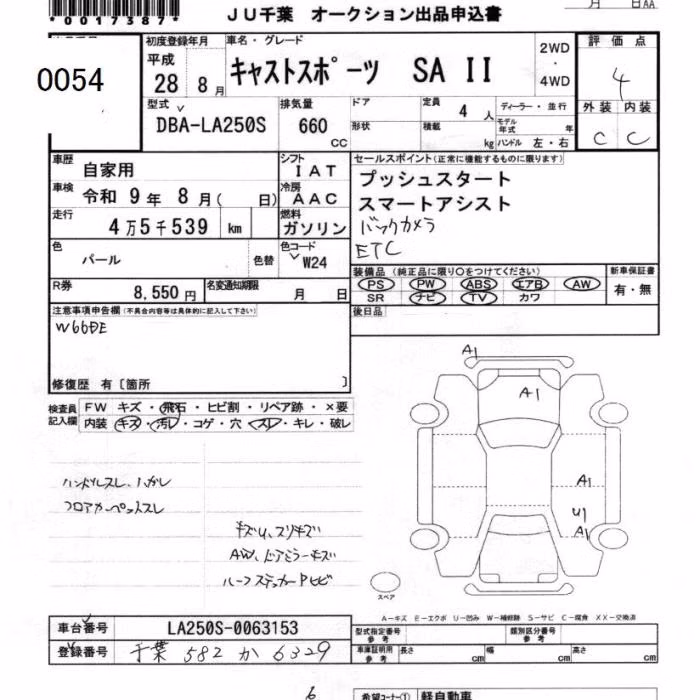 *0017387*
JU千葉 オークション出品申込書
月 日 AA
0054
初度登録年月
平成
28 8 月
車名・グレード
キャストスポーツ SA II
2WD
・
4WD
評価点
4
外装 内装
C C
型式
DBA-LA250S
排気量
660
CC
ドア
形状
定員
4 人
積載
kg
ディーラー・並行
モデル年式 年
ハンドル 左・右
車歴
自家用
シフト
IAT
車検
令和 9 年 8 月( 日)
冷房
AAC
走行
4万5千539 km
燃料
ガソリン
色
パール
色替
色コード
W24
R券
8,550 円
名変通知期限
月 日
セールスポイント(正常に機能するものに限ります)
プッシュスタート
スマートアシスト
バックカメラ
ETC
装備品(純正品に限り〇をつけてください)
PS PW ABS エアB AW
SR ナビ TV カワ
新車保証書
有・無
後日品
注意事項申告欄(不具合内容等は具体的に記入して下さい)
修復歴 有〔箇所 〕
検査員
記入欄
FW キズ・飛石・ヒビ割・リペア跡・×要
内装 キズ・汚レ・コゲ・穴・スレ・キレ・破レ
ハンドルスレ、ハガレ
フロアカーペットスレ
キズU、スリキズ
AW、ドアミラーキズ
A1
A1
A1
U1
A1
スペア
A-キズ E-エクボ U-凹み W-補修跡 S-サビ C-腐食 XX-交換済
車台番号
LA250S-0063153
登録番号
千葉 582 か 6329
型式指定番号
参考
類別区分番号
参考
車庫証明用
参考
長さ cm
幅 cm
高さ cm
6
希望コーナー①
軽自動車